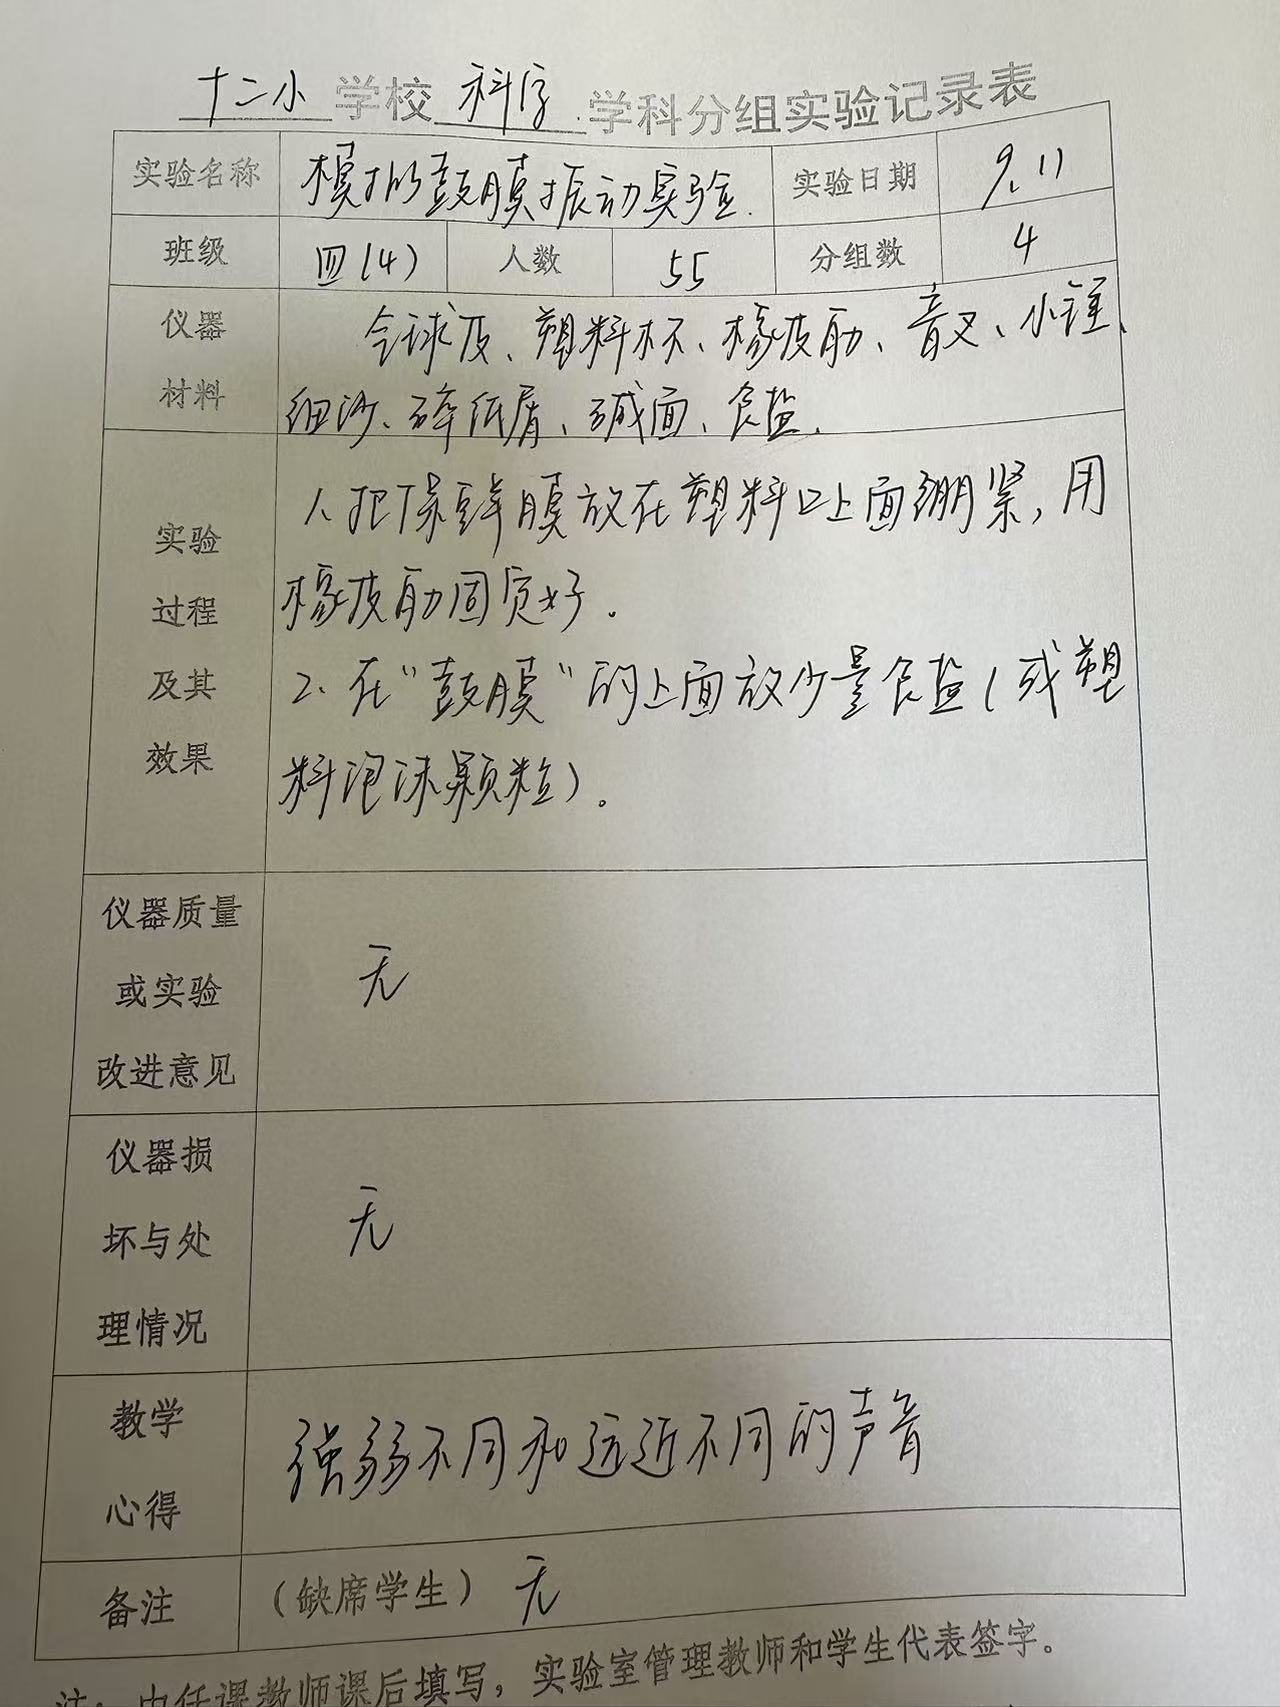 十二小 学校 科学 学科分组实验记录表
实验名称 模拟鼓膜振动实验. 实验日期 9.11
班级 四(4) 人数 55 分组数 4
仪器材料 气球皮、塑料杯、橡皮筋、音叉、小锤、
细沙、碎纸屑、碱面、食盐.
实验过程及其效果
1.把保鲜膜放在塑料口上面绷紧,用
橡皮筋固定好。
2.在“鼓膜”的上面放少量食盐(或塑
料泡沫颗粒)。
仪器质量或实验改进意见 无
仪器损坏与处理情况 无
教学心得 强弱不同和远近不同的声音
备注 (缺席学生) 无
注:由任课教师课后填写,实验室管理教师和学生代表签字。